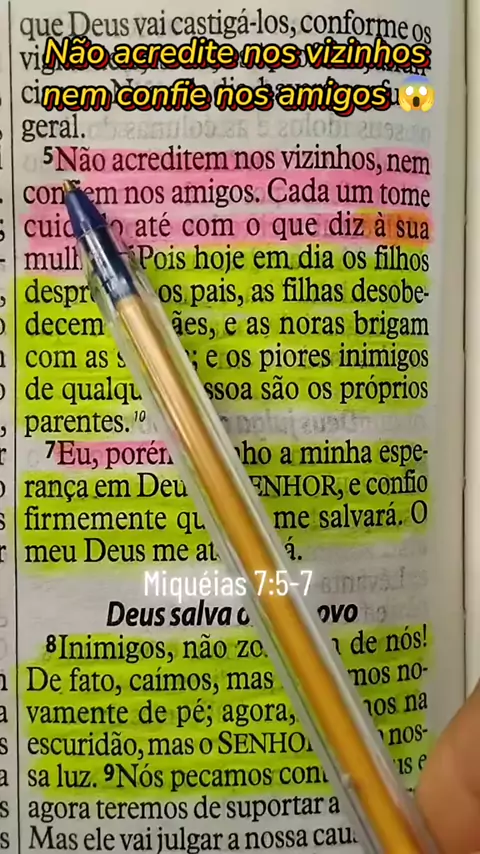 que Deus vai castigá-los, conforme os
Não acredite nos vizinhos
nem confie nos amigos 😱
geral.
5Não acreditem nos vizinhos, nem
confiem nos amigos. Cada um tome
cuidado até com o que diz à sua
mulher. Pois hoje em dia os filhos
desprezam os pais, as filhas desobe-
decem mães, e as noras brigam
com as e os piores inimigos
de qualquer pessoa são os próprios
parentes.10
7Eu, porém, ponho a minha espe-
rança em Deus, o SENHOR, e confio
firmemente que me salvará. O
meu Deus me
Miquéias 7:5-7
Deus salva povo
8Inimigos, não de nós!
De fato, caímos, mas no-
vamente de pé; agora, na
escuridão, mas o SENHOR nos-
sa luz. 9Nós pecamos e
agora teremos de suportar a
Mas ele vai julgar a nossa